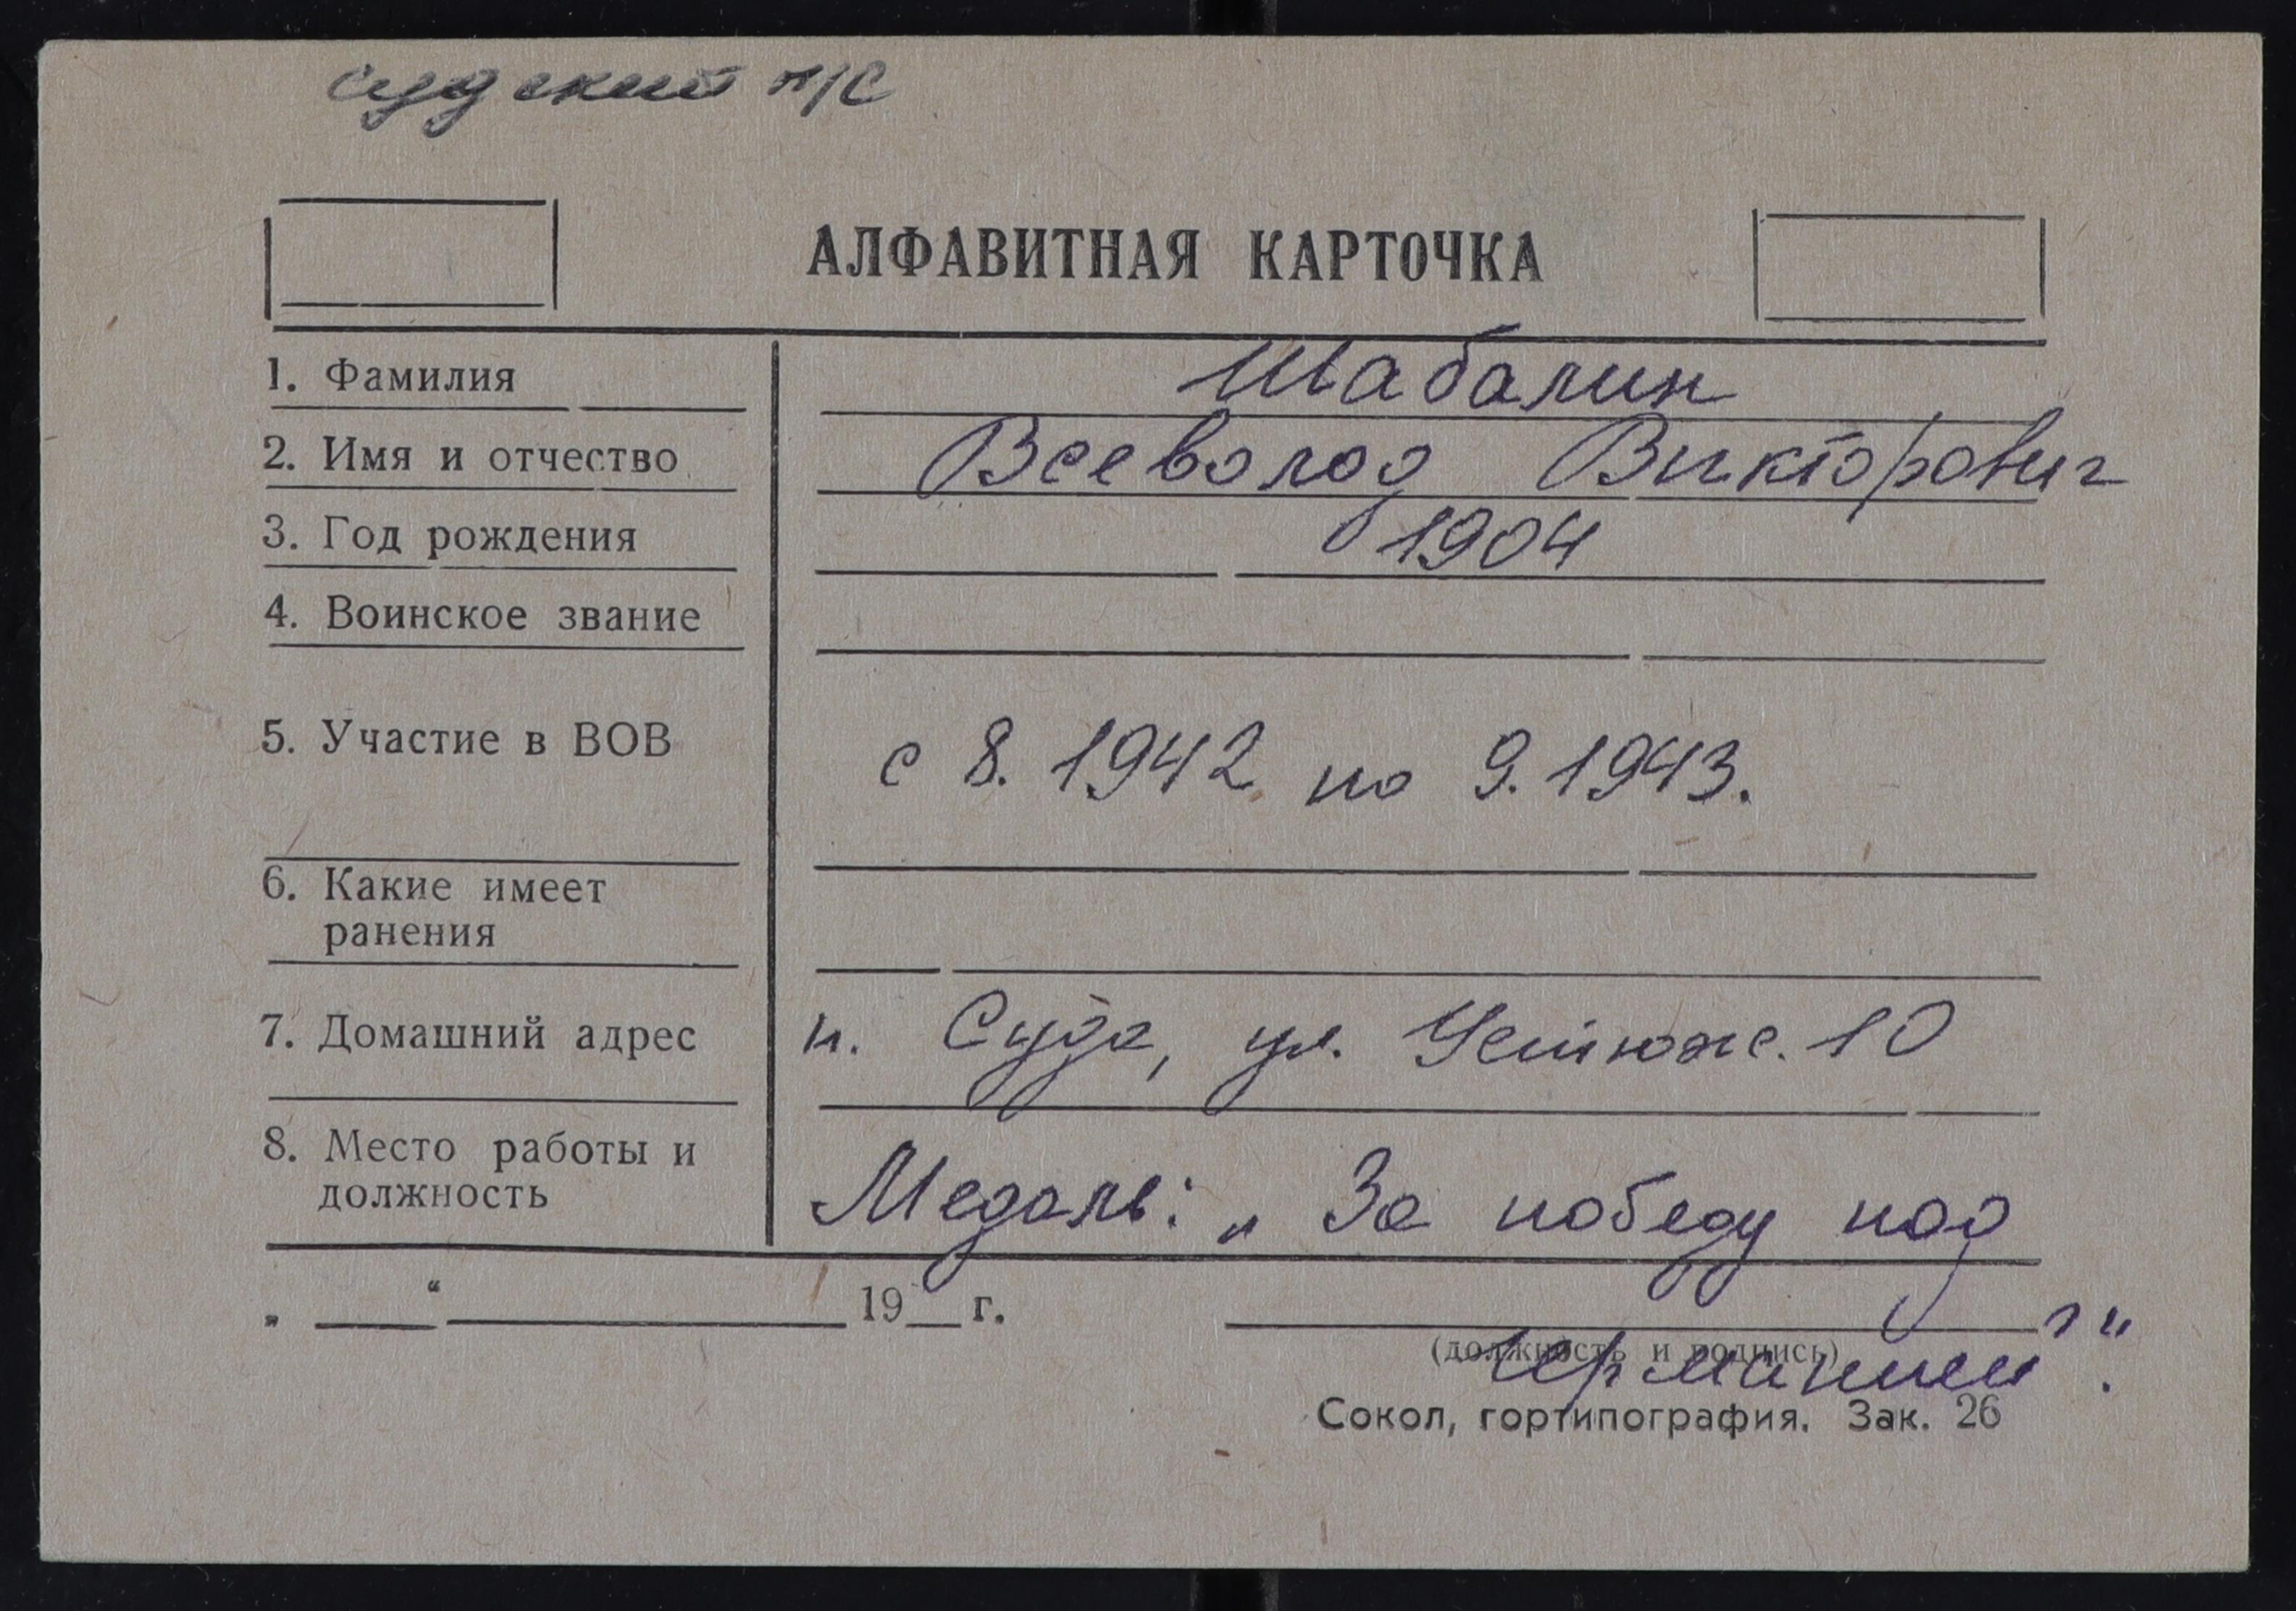 Судский п/с
АЛФАВИТНАЯ КАРТОЧКА
1. Фамилия Шабалин
2. Имя и отчество Всеволод Викторович
3. Год рождения 1904
4. Воинское звание
5. Участие в ВОВ с 8. 1942 по 9. 1943.
6. Какие имеет
ранения
7. Домашний адрес п. Суда, ул. Устюже. 10
8. Место работы и
должность Медаль: „За победу под
„ “ 19 г.
(должность и подпись)
Германией“.
Сокол, гортипография. Зак. 26